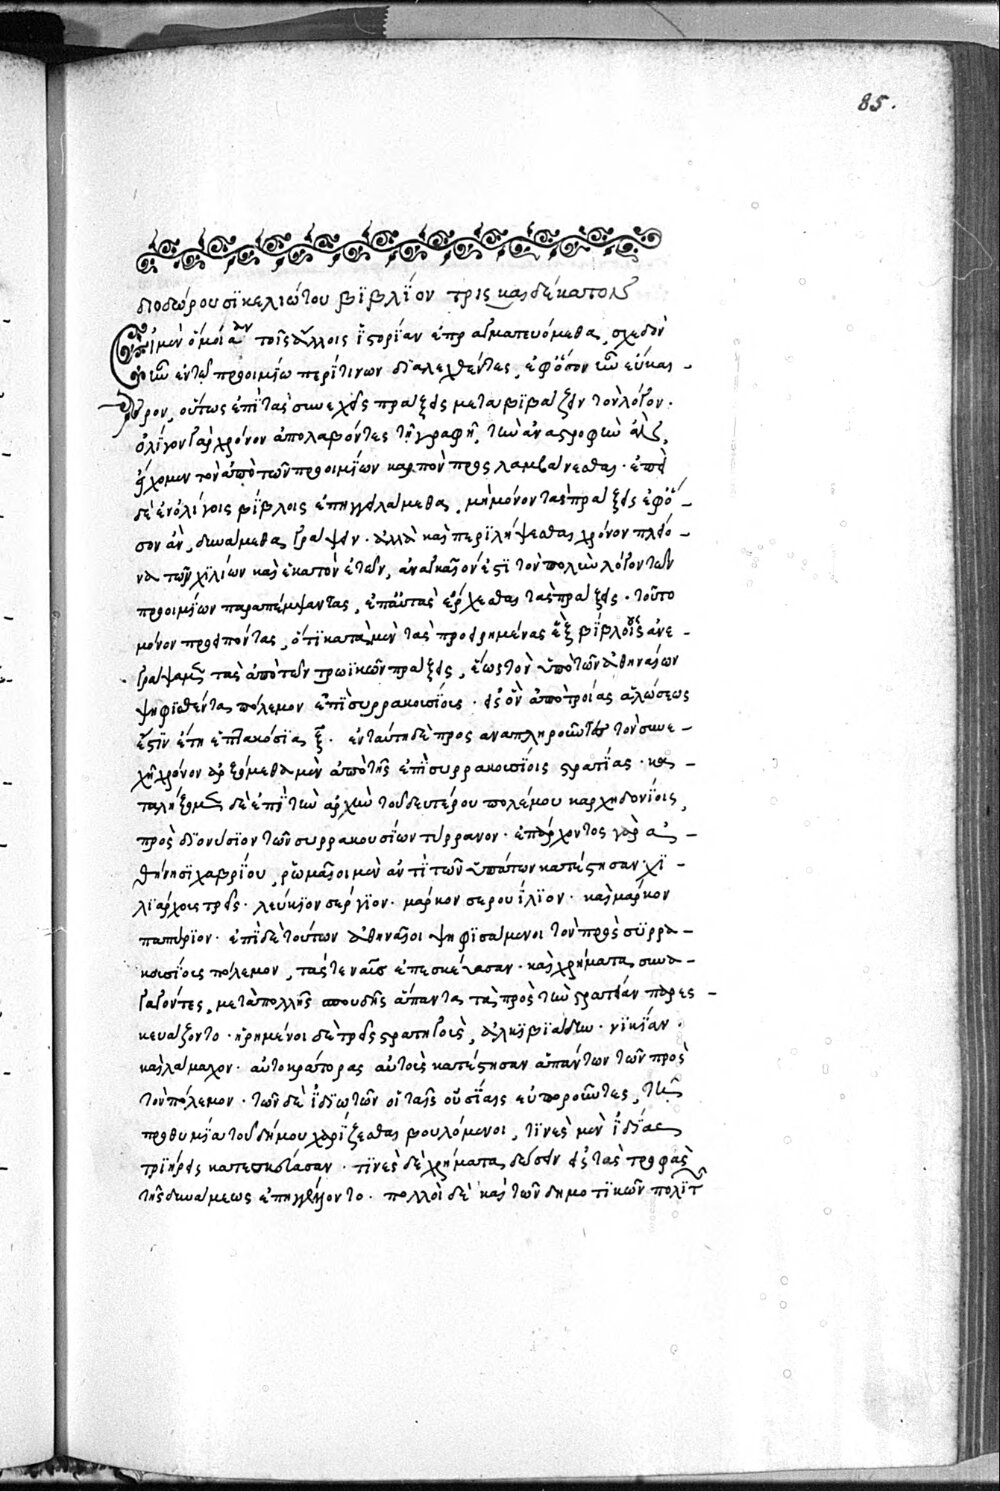 85.
διοδώρου σϊκελιώτου βϊβλΐον τρισκαιδέκατον
Εἰ μὲν ὅμοια τοῖς ἄλλοις ἵστορίαν ἐπραγματευόμεθα, σχεδὸν
ἦν ἐν τῶ προοιμίω περί τινων διαλεχθέντας, ἐφ' ὅσον ἦν εὔκαι-
ρον, οὕτως ἐπῒ τὰς συνεχεῖς πράξεις μεταβϊβάζειν τὸν λόγον.
ὀλίγον γὰρ χρόνον ἀπολαβόντες τῆ γραφῆ, τὴν ἀναστροφὴν ἂν
ἔχομεν τὸν ἀπὸ τῶν προοιμΐων καρπὸν προσλαμβάνεσθαι. ἐπεὶ
δὲ ἐν ὀλίγοις βίβλοις ἐπηγγειλάμεθα, μὴ μόνον τὰς πράξεις ἐφ' ὅ-
σον ἂν, δυνάμεθα γράψειν. ἀλλὰ καὶ περιλήψεσθαι χρόνον πλεί-
να τῶν χϊλίων καὶ ἑκατὸν ἐτῶν, ἀναγκαῖόν ἐστϊ τὸν πολὺν λόγον τῶν
προοιμίων παραπέμψαντας, ἐπ' αὐτὰς ἔρχεσθαι τὰς πράξεις. τοῦτο
μόνον προειπόντας, ὅτϊ κατὰ μὲν τὰς προειρημένας ἓξ βΐβλους ἀνε-
γράψαμεν τὰς ἀπὸ τῶν τρωϊκῶν πράξεις, ἕως τὸν ὑπὸ τῶν ἀθηναίων
ψηφϊσθέντας πόλεμον ἐπῒ συρρακουσΐοις. εἰς ὃν ἀπὸ τροίας ἁλώσεως
ἐστϊν ἔτη ἑπτακόσϊα ξ̄. ἐν ταύτη δὲ προσαναπληροῦντες τὸν συνε-
χῆ χρόνον ἀρξόμεθα μὲν ἀπὸ τῆς ἐπῒ συρρακουσΐοις στρατΐας. κα-
ταλήξομεν δὲ ἐπῒ τὴν ἀρχὴν τοῦ δευτέρου πολέμου καρχηδονΐοις,
πρὸς διονύσϊον τῶν συρρακουσίων τύρρανον. ἐπ' ἄρχοντος γὰρ ἀ-
θήνησϊ χαβρίου, ῥωμαῖοι μὲν ἀντῒ τῶν ὑπάτων κατέστησαν χϊ-
λϊάρχους τρεῖς. λεύκϊον σέργϊον. μάρκον σερουΐλϊον. καὶ μάρκον
παπύρϊον. ἐπῒ δὲ τούτων ἀθηναῖοι ψηφϊσάμενοι τὸν πρὸς σϋρρα-
κουσίους πόλεμον, τάς τε ναῦς ἐπεσκεύασαν. καὶ χρήματα συνα-
γαγόντες, μετὰ πολλῆς σπουδῆς ἅπαντα τὰ πρὸς τὴν στρατείαν παρεσ-
κευάζοντο. ἡρημένοι δὲ τρεῖς στρατηγοὺς, ἀλκϊβϊάδην. νϊκΐαν.
καὶ λάμαχον. αὐτοκράτορας αὐτοὺς κατέστησαν ἁπάντων τῶν πρὸς
τὸν πόλεμον. τῶν δὲ ἰδϊωτῶν οἱ ταῖς οὐσΐαις εὐποροῦντες, τῆ
προθυμΐα τοῦ δήμου χαρΐζεσθαι βουλόμενοι, τϊνὲς μὲν ἰδΐας
τρϊήρεις κατεσκεύασαν. τϊνὲς δὲ χρήματα δώσειν εἰς τὰς τροφὰς
τῆς δυνάμεως ἐπηγγέλλοντο. πολλοὶ δὲ καὶ τῶν δημοτϊκῶν πολϊτ